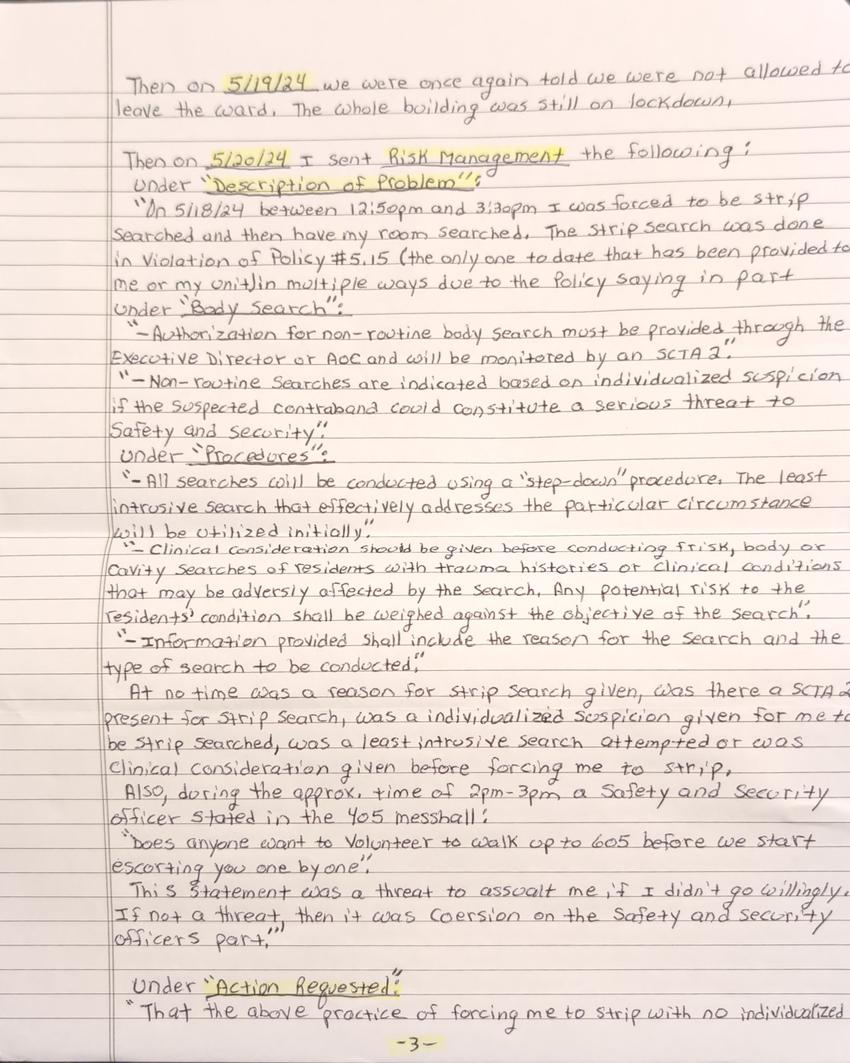 Then on 5/19/24 we were once again told we were not allowed to
leave the ward. The whole building was still on lockdown.
Then on 5/20/24 I sent Risk Management the following:
Under "Description of Problem":
"On 5/18/24 between 12:50pm and 3:30pm I was forced to be strip
searched and then have my room searched. The strip search was done
in Violation of Policy #5.15 (the only one to date that has been provided to
me or my unit) in multiple ways due to the Policy saying in part
under "Body Search":
"-Authorization for non-routine body search must be provided through the
Executive Director or AOC and will be monitored by an SCTA 2."
"-Non-routine Searches are indicated based on individualized suspicion
if the suspected contraband could constitute a serious threat to
Safety and security".
Under "Procedures":
"-All searches will be conducted using a "step-down" procedure. The least
intrusive search that effectively addresses the particular circumstance
will be utilized initially."
"-Clinical consideration should be given before conducting frisk, body or
Cavity searches of residents with trauma histories or clinical conditions
that may be adversly affected by the search. Any potential risk to the
residents' condition shall be weighed against the objective of the search".
"-Information provided shall include the reason for the search and the
type of search to be conducted."
At no time was a reason for strip search given, was there a SCTA 2
present for strip search, was a individualized suspicion given for me to
be strip searched, was a least intrusive search attempted or was
Clinical consideration given before forcing me to strip.
Also, during the approx. time of 2pm-3pm a Safety and Security
officer stated in the 405 messhall:
"Does anyone want to Volunteer to walk up to 605 before we start
escorting you one by one".
This statement was a threat to assualt me, if I didn't go willingly.
If not a threat, then it was Coersion on the Safety and security
officers part."
Under "Action Requested":
"That the above practice of forcing me to strip with no individualized
-3-